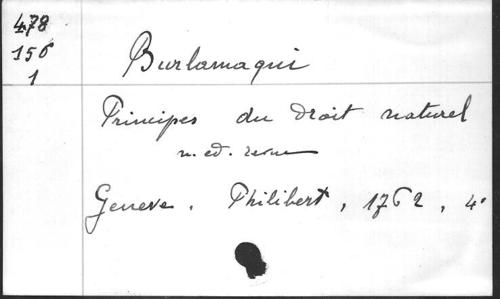 478
156
1
Burlamaqui
Principes du Droit naturel
n. ed. revue
Geneve. Philibert, 1762, 4°